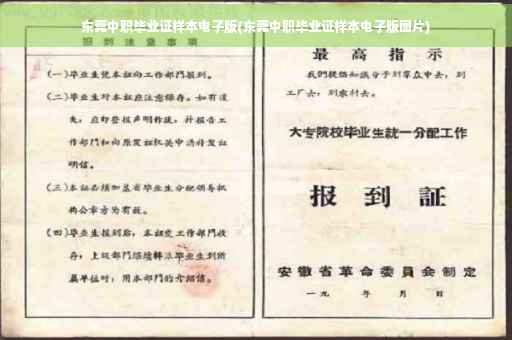 东莞中职毕业证样本电子版(东莞中职毕业证样本电子版图片)
报到注意事项
(一)毕业生凭本证向工作部门报到。
(二)毕业生对本证应注意保存。如有遗
失，应即登报声明作废，并报告工
作部门和向原发证机关申请补发证
明信。
(三)本证必须加盖省毕业生分配领导机
构公章方为有效。
(四)毕业生报到后，本证交工作部门收
存；上级部门继续转派毕业生到所
属单位时，用本部门的介绍信。
最高指示
我们提倡知识分子到群众中去，到
工厂去，到农村去。
大专院校毕业生統一分配工作
报到証
安徽省革命委員会制定
一九 年 月 日